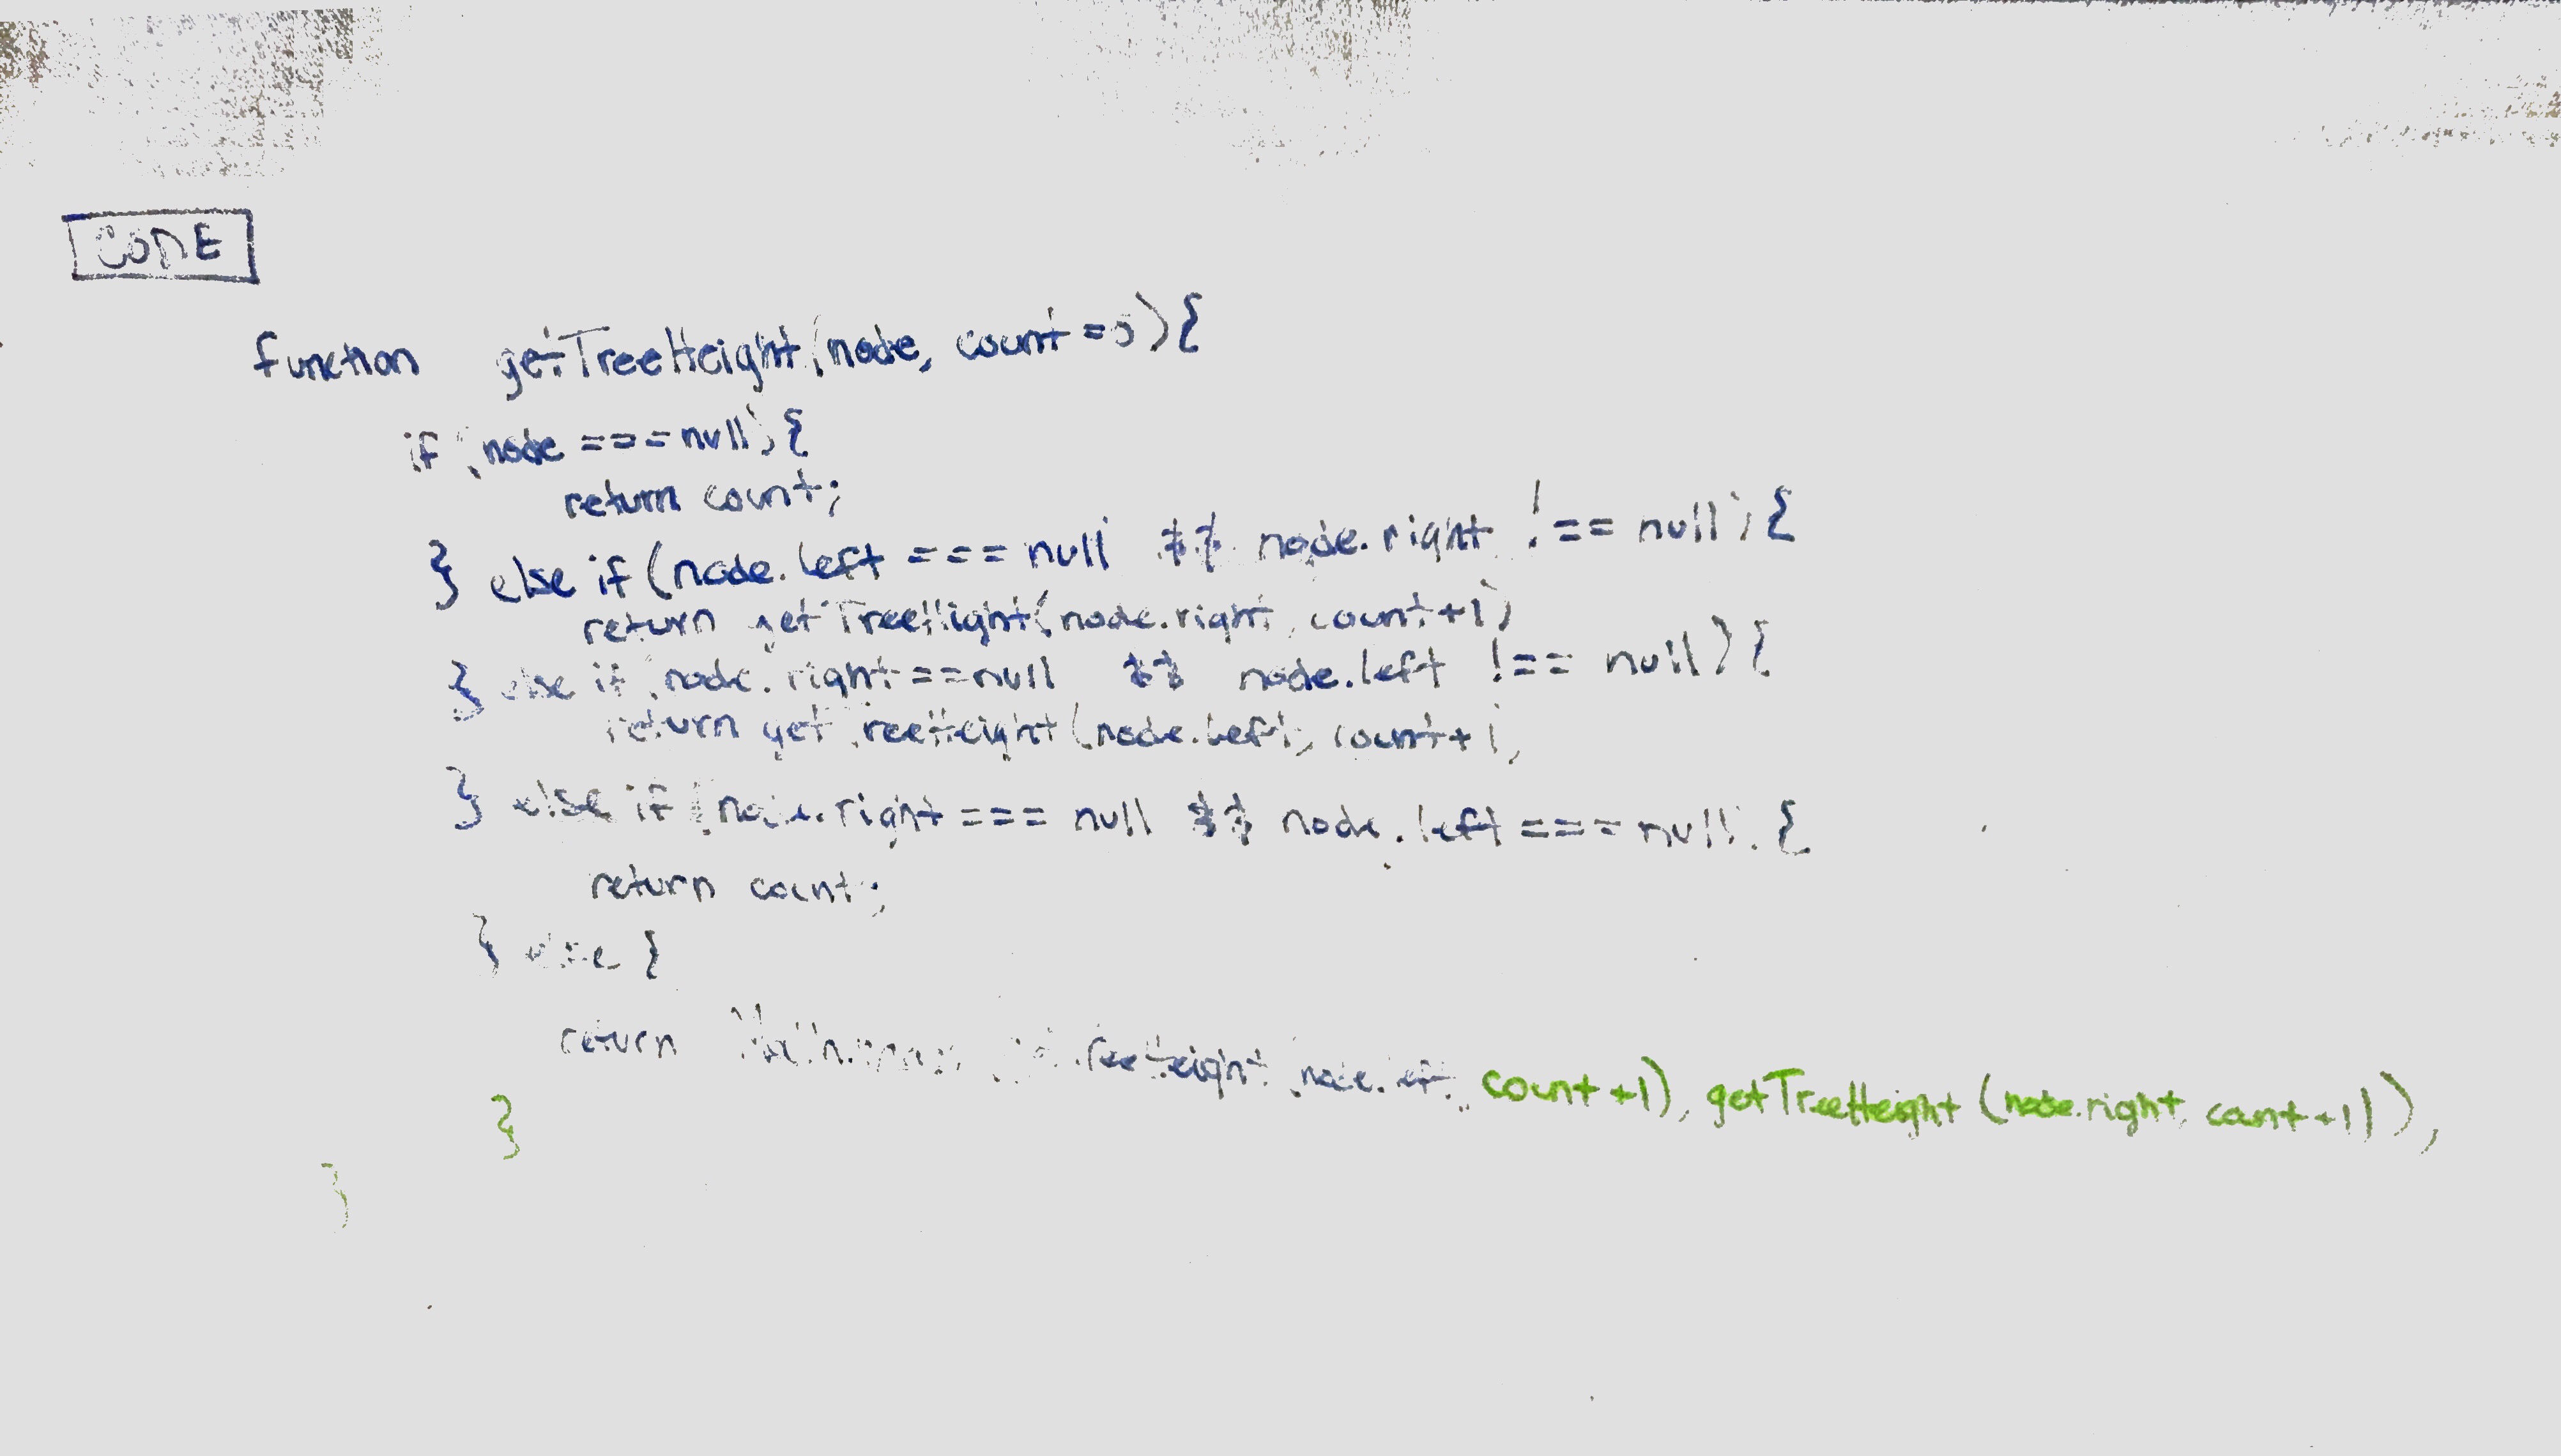 CODE
function getTreeHeight(node, count=0){
if (node === null){
return count;
} else if (node.left === null && node.right !== null){
return getTreeHight(node.right, count+1)
} else if (node.right===null && node.left !== null){
return getTreeHeight(node.left, count+1)
} else if (node.right === null && node.left === null){
return count;
} else {
return Math.max(getTreeHeight(node.left, count+1), getTreeHeight(node.right, count+1));
}
}